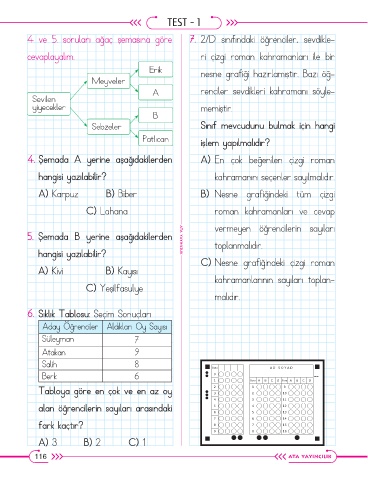 TEST - 1
4 ve 5. soruları ağaç şemasına göre
cevaplayalım.
Sevilen
yiyecekler
Meyveler
Erik
A
Sebzeler
B
Patlıcan
4. Şemada A yerine aşağıdakilerden
hangisi yazılabilir?
A) Karpuz B) Biber
C) Lahana
5. Şemada B yerine aşağıdakilerden
hangisi yazılabilir?
A) Kivi B) Kayısı
C) Yeşilfasulye
6. Sıklık Tablosu: Seçim Sonuçları
Aday Öğrenciler Aldıkları Oy Sayısı
Süleyman 7
Atakan 9
Salih 8
Berk 6
Tabloya göre en çok ve en az oy
alan öğrencilerin sayıları arasındaki
fark kaçtır?
A) 3 B) 2 C) 1
7. 2/D sınıfındaki öğrenciler, sevdikle-
ri çizgi roman kahramanları ile bir
nesne grafiği hazırlamıştır. Bazı öğ-
renciler sevdikleri kahramanı söyle-
memiştir.
Sınıf mevcudunu bulmak için hangi
işlem yapılmalıdır?
A) En çok beğenilen çizgi roman
kahramanını seçenler sayılmalıdır.
B) Nesne grafiğindeki tüm çizgi
roman kahramanları ve cevap
vermeyen öğrencilerin sayıları
toplanmalıdır.
C) Nesne grafiğindeki çizgi roman
kahramanlarının sayıları toplan-
malıdır.
AD SOYAD
116
ATA YAYINCILIK